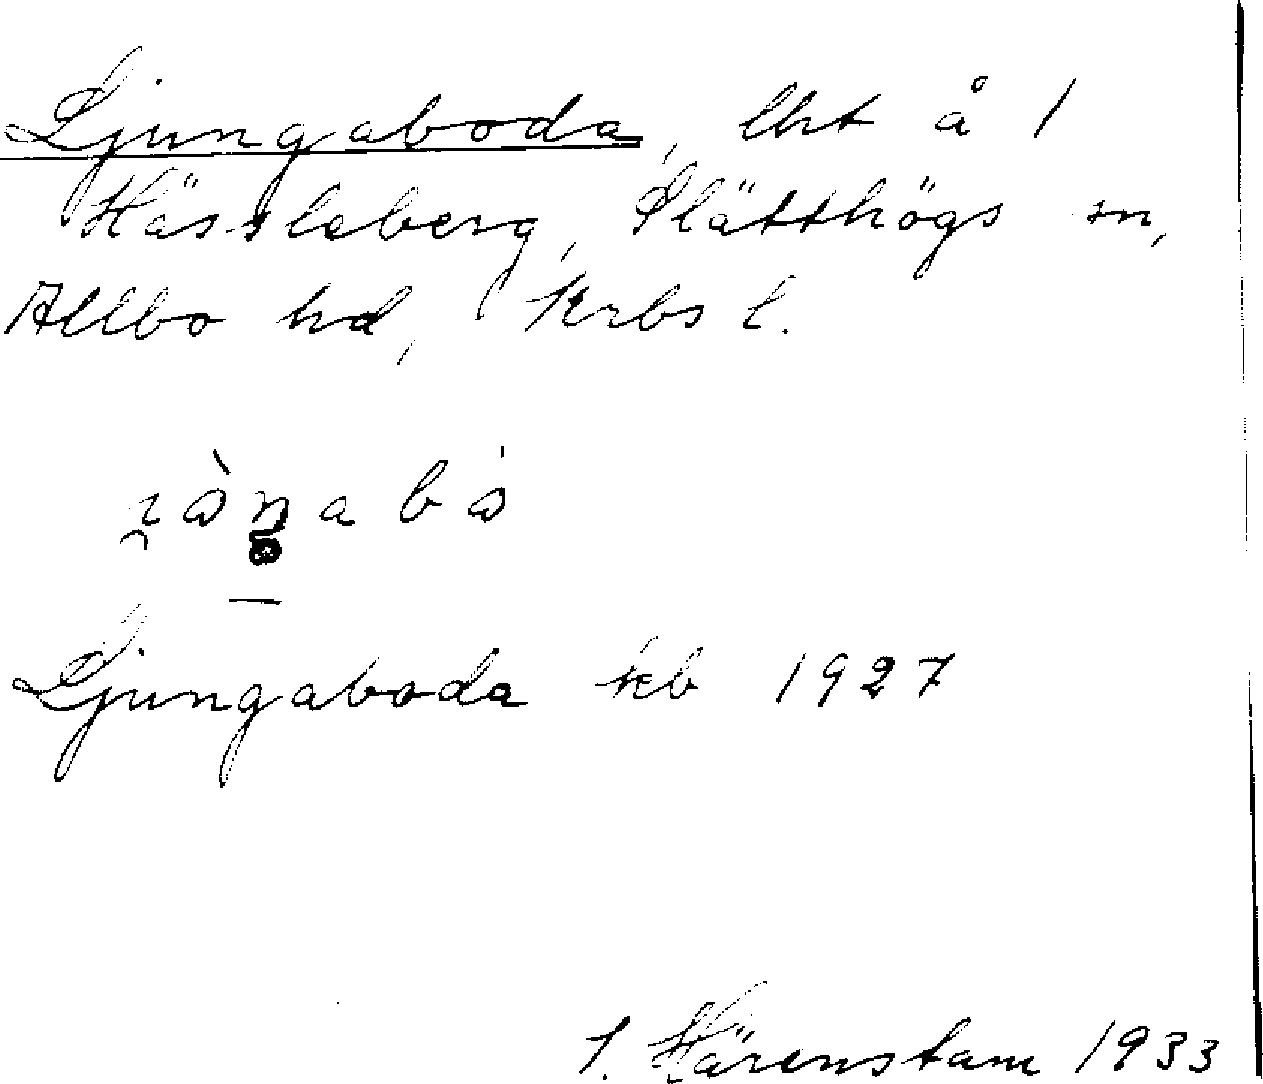 Ljungaboda, lht å 1
Hässleberg, Slätthögs sn,
Allbo hd, Krbs l.
Ljungaboda kb 1927
I. Härenstam 1933